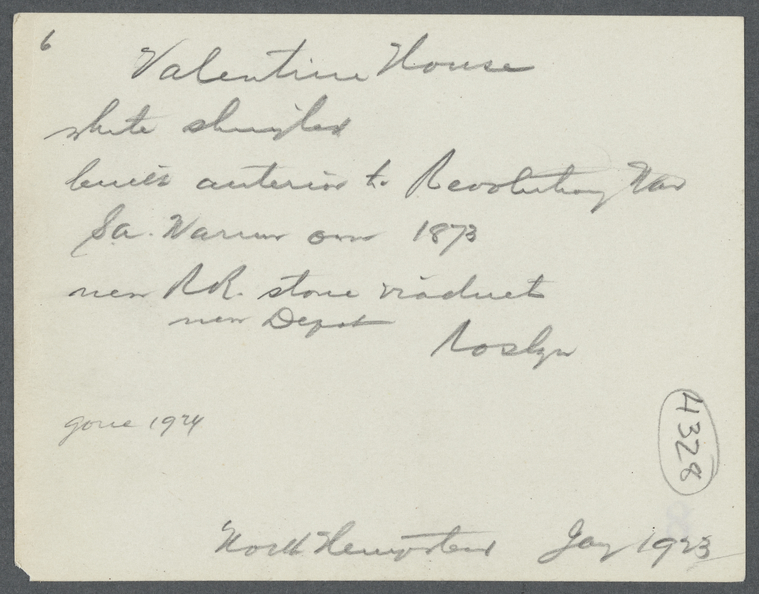 6
Valentine House
white shingled
built anterior to Revolutionary War
Sa. Warren own 1873
near R.R. stone viaduct
near Depot
Roslyn
gone 1924
4328
North Hempstead Jay 1923